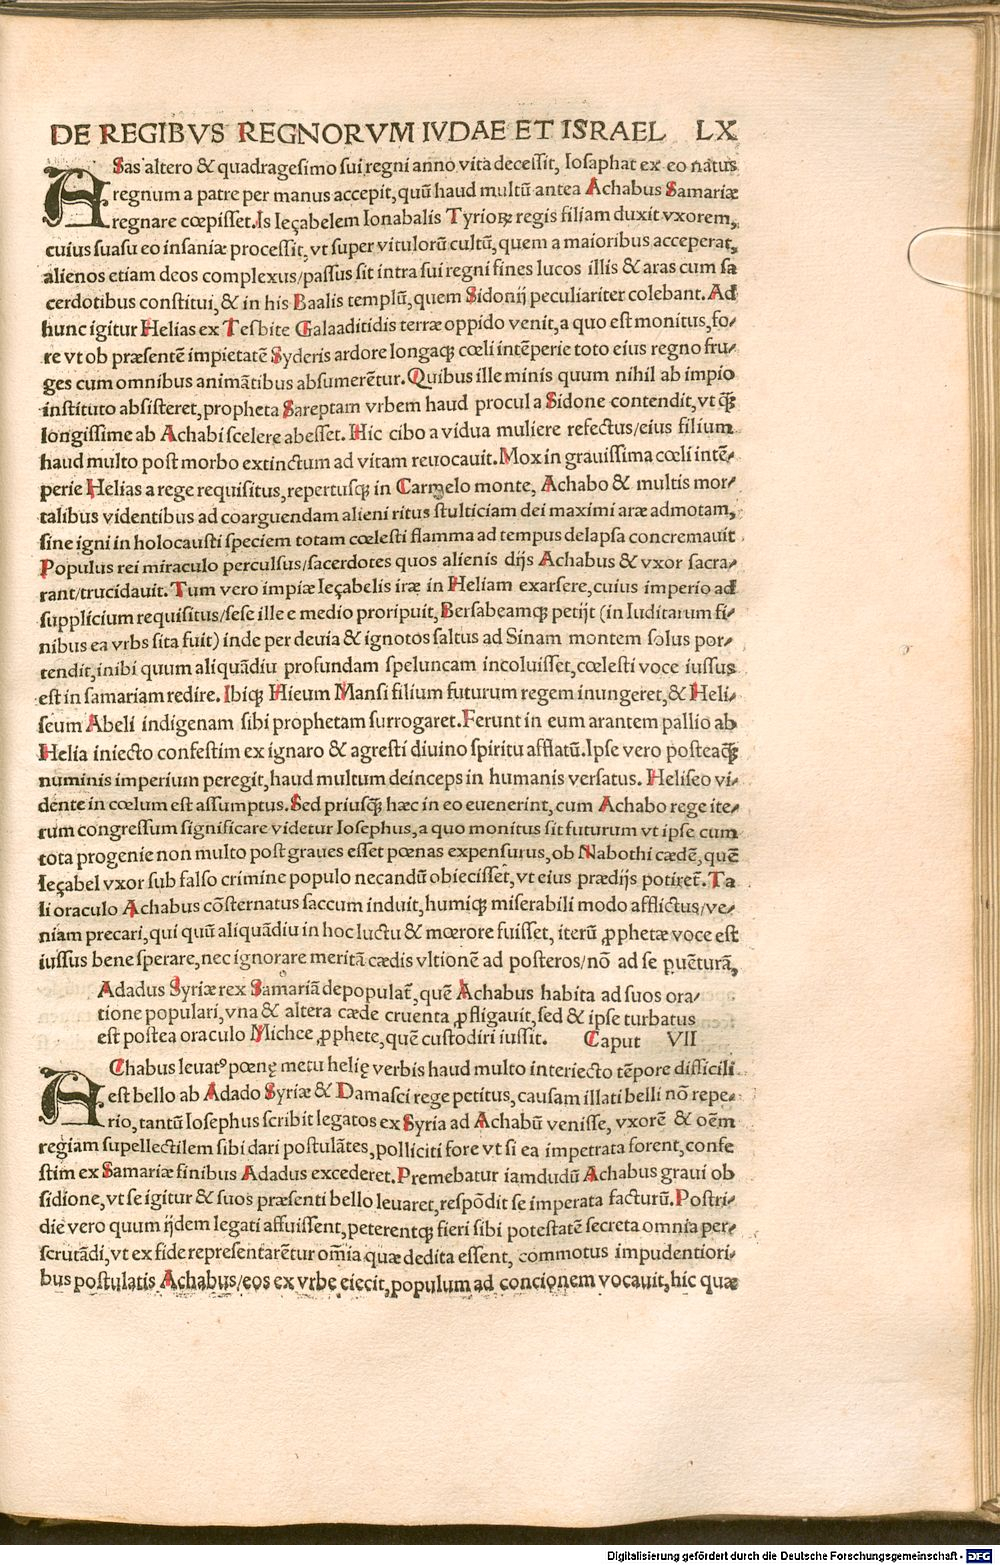 DE REGIBVS REGNORVM IVDAE ET ISRAEL LX
ASas altero & quadragesimo sui regni anno vita decessit, Iosaphat ex eo natus
regnum a patre per manus accepit, quū haud multū antea Achabus Samariæ
regnare cœpisset. Is Ieçabelem Ionabalis Tyrioꝝ regis filiam duxit vxorem,
cuius suasu eo insaniæ processit, vt super vitulorū cultū, quem a maioribus acceperat,
alienos etiam deos complexus/passus sit intra sui regni fines lucos illis & aras cum sa
cerdotibus constitui, & in his Baalis templū, quem Sidonij peculiariter colebant. Ad
hunc igitur Helias ex Tesbite Galaaditidis terræ oppido venit, a quo est monitus, fo/
re vt ob præsentē impietatē Syderis ardore longaqꝫ cœli intēperie toto eius regno fru/
ges cum omnibus animātibus absumerētur. Quibus ille minis quum nihil ab impio
instituto absisteret, propheta Sareptam vrbem haud procul a Sidone contendit, vt q̄ꝫ
longissime ab Achabi scelere abesset. Hic cibo a vidua muliere refectus/eius filium
haud multo post morbo extinctum ad vitam reuocauit. Mox in grauissima cœli intē/
perie Helias a rege requisitus, repertusqꝫ in Carmelo monte, Achabo & multis mor/
talibus videntibus ad coarguendam alieni ritus stulticiam dei maximi aræ admotam,
sine igni in holocausti speciem totam cœlesti flamma ad tempus delapsa concremauit
Populus rei miraculo perculsus/sacerdotes quos alienis dijs Achabus & vxor sacra/
rant/trucidauit. Tum vero impiæ Ieçabelis iræ in Heliam exarsere, cuius imperio ad
supplicium requisitus/sese ille e medio proripuit, Bersabeamqꝫ petijt (in Iuditarum fi/
nibus ea vrbs sita fuit) inde per deuia & ignotos saltus ad Sinam montem solus por/
tendit, inibi quum aliquādiu profundam speluncam incoluisset, cœlesti voce iussus
est in samariam redire. Ibiqꝫ Hieum Mansi filium futurum regem inungeret, & Heli/
seum Abeli indigenam sibi prophetam surrogaret. Ferunt in eum arantem pallio ab
Helia iniecto confestim ex ignaro & agresti diuino spiritu afflatū. Ipse vero posteaq̄ꝫ
numinis imperium peregit, haud multum deinceps in humanis versatus. Heliseo vi/
dente in cœlum est assumptus. Sed priusq̄ꝫ hæc in eo euenerint, cum Achabo rege ite/
rum congressum significare videtur Iosephus, a quo monitus sit futurum vt ipse cum
tota progenie non multo post graues esset pœnas expensurus, ob Nabothi cædē, quē
Ieçabel vxor sub falso crimine populo necandū obiecisset, vt eius prædijs potiret̄. Ta
li oraculo Achabus cōsternatus saccum induit, humiqꝫ miserabili modo afflictus/ve/
niam precari, qui quū aliquādiu in hoc luctu & mœrore fuisset, iterū ꝓphetæ voce est
iussus bene sperare, nec ignorare meritā cædis vltionē ad posteros/nō ad se ꝑuēturā,
Adadus Syriæ rex Samariā depopulat̄, quē Achabus habita ad suos ora/
tione populari, vna & altera cæde cruenta ꝓfligauit, sed & ipse turbatus
est postea oraculo Michee ꝓphete, quē custodiri iussit. Caput VII
AChabus leuatꝰ pœnę metu helię verbis haud multo interiecto tēpore difficili
est bello ab Adado Syriæ & Damasci rege petitus, causam illati belli nō repe/
rio, tantū Iosephus scribit legatos ex Syria ad Achabū venisse, vxorē & oēm
regiam supellectilem sibi dari postulātes, polliciti fore vt si ea impetrata forent, confe
stim ex Samariæ finibus Adadus excederet. Premebatur iamdudū Achabus graui ob
sidione, vt se igitur & suos præsenti bello leuaret, respōdit se imperata facturū. Postri/
die vero quum ijdem legati affuissent, peterentqꝫ fieri sibi potestatē secreta omnia per/
scrutādi, vt ex fide representarētur om̄ia quæ dedita essent, commotus impudentiori/
bus postulatis Achabus/eos ex vrbe eiecit, populum ad concionem vocauit, hic quæ
Digitalisierung gefördert durch die Deutsche Forschungsgemeinschaft - DFG